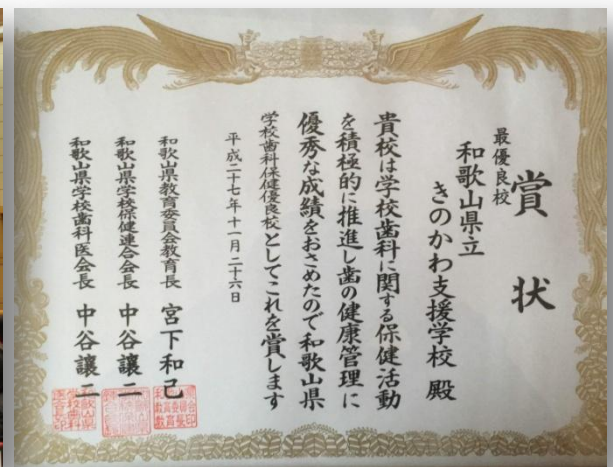 賞状
最優良校
和歌山県立
きのかわ支援学校 殿
貴校は学校歯科に関する保健活動
を積極的に推進し歯の健康管理に
優秀な成績をおさめたので和歌山県
学校歯科保健優良校としてこれを賞します
平成二十七年十一月二十六日
和歌山県教育委員会教育長 宮下和己
和歌山県学校保健連合会長 中谷譲二
和歌山県学校歯科医会長 中谷譲二